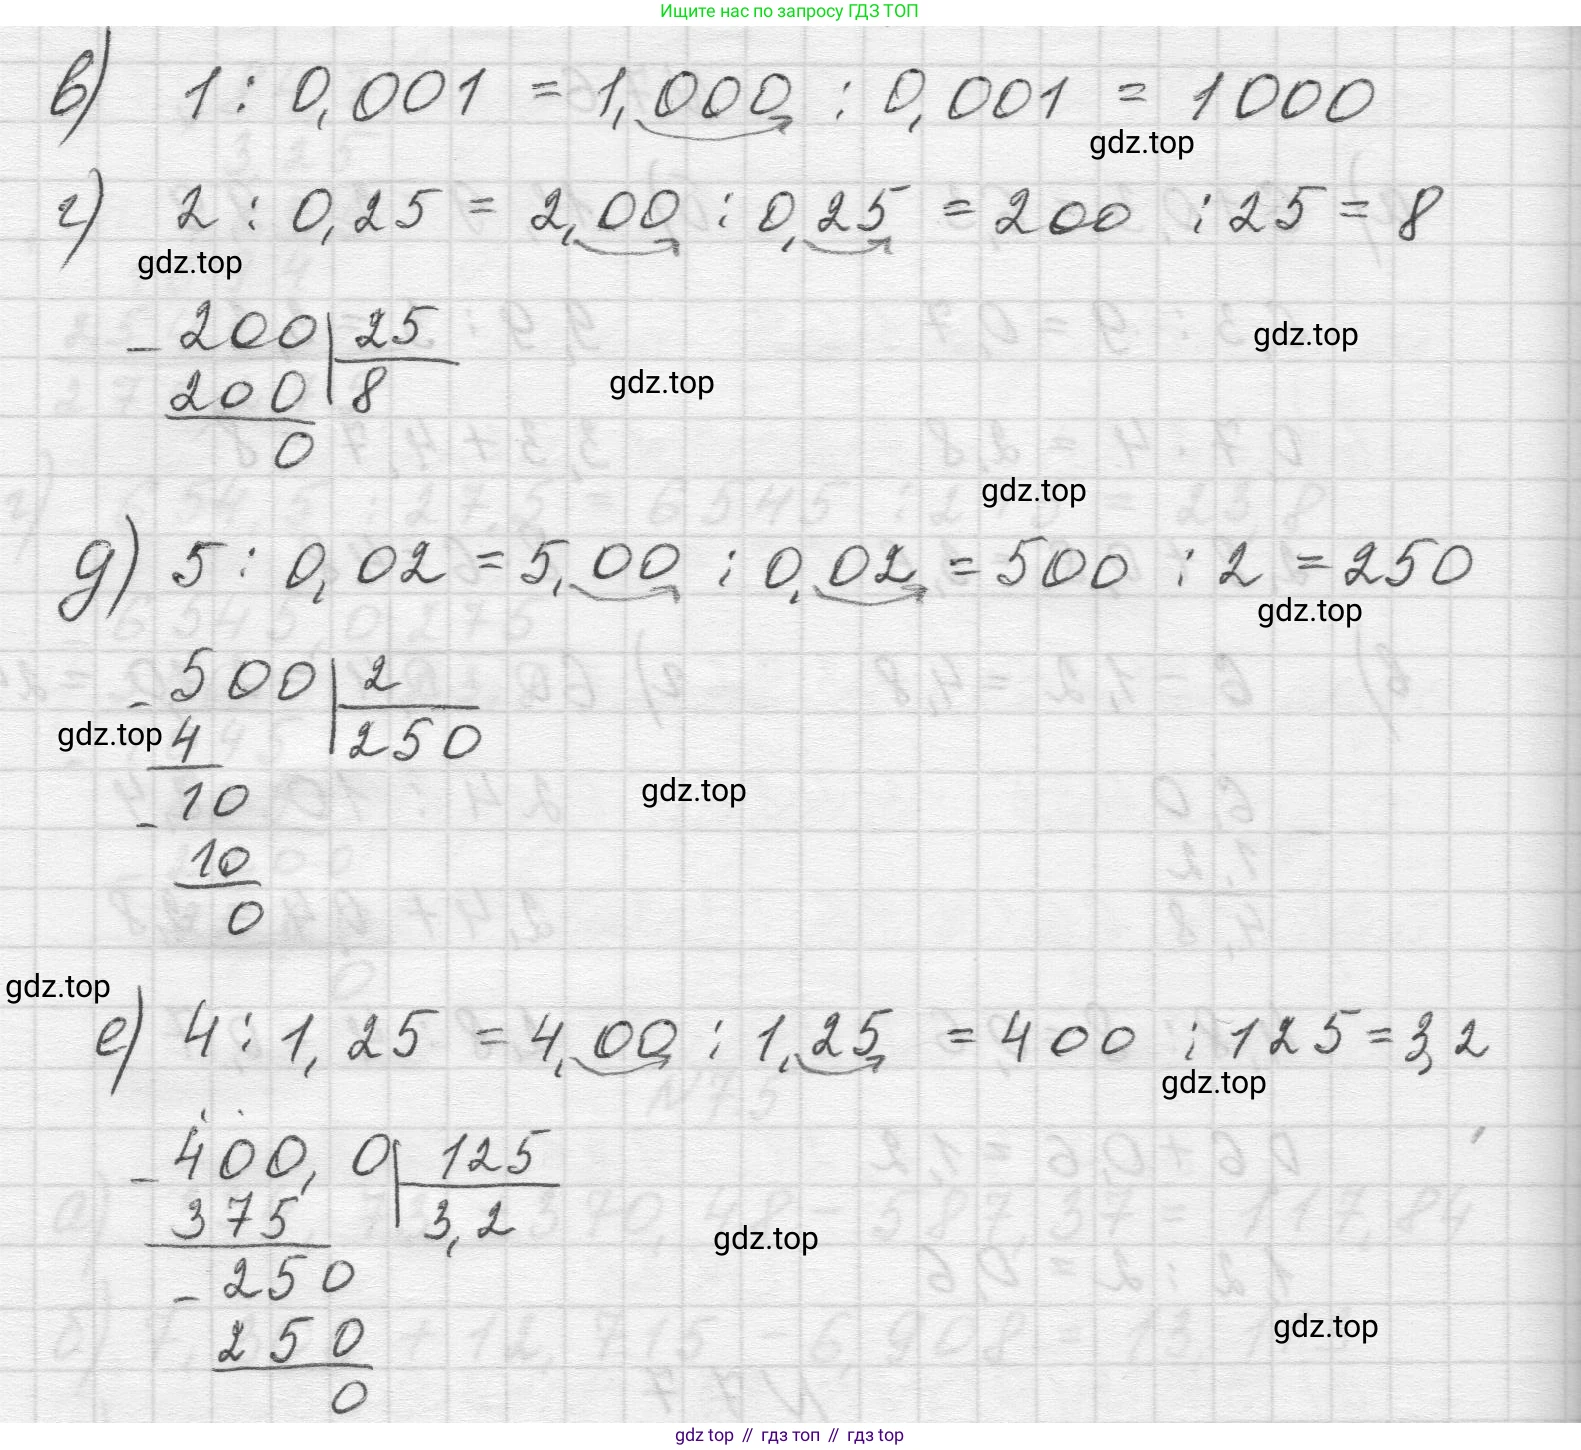 Ищите нас по запросу ГДЗ ТОП
в) 1 : 0,001 = 1,000 : 0,001 = 1000
gdz.top
г) 2 : 0,25 = 2,00 : 0,25 = 200 : 25 = 8
gdz.top
- 200 | 25
gdz.top
200 | 8
gdz.top
0
gdz.top
д) 5 : 0,02 = 5,00 : 0,02 = 500 : 2 = 250
gdz.top
- 500 | 2
gdz.top
4 | 250
gdz.top
- 10
10
0
gdz.top
е) 4 : 1,25 = 4,00 : 1,25 = 400 : 125 = 3,2
gdz.top
- 400,0 | 125
375 | 3,2
gdz.top
- 250
gdz.top
250
0
gdz.top // гдз топ // гдз top